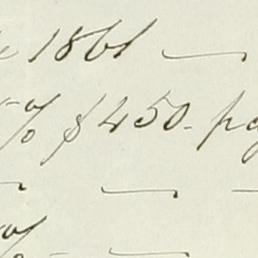 1861 —
% $450. pa
— —
% —